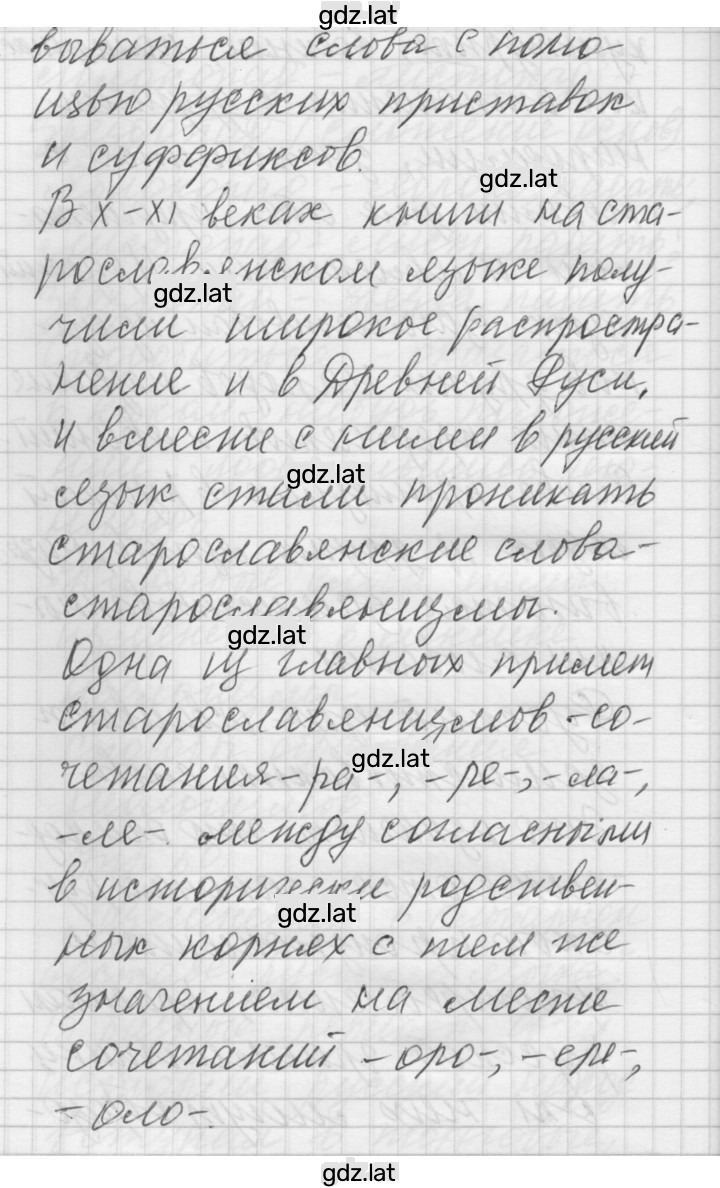 gdz.lat
вываться слова с помо-
щью русских приставок
и суффиксов.
gdz.lat
В X-XI веках книги на ста-
рославянском языке полу-
gdz.lat
чили широкое распростра-
нение и в Древней Руси,
и вместе с ними в русский
gdz.lat
язык стали проникать
старославянские слова-
старославянизмы.
gdz.lat
Одна из главных примет
старославянизмов - со-
gdz.lat
четания -ра-, -ре-, -ла-,
-ле- между согласными
в исторически родствен-
gdz.lat
ных корнях с тем же
значением на месте
сочетаний -оро-, -ере-,
-оло-.
gdz.lat